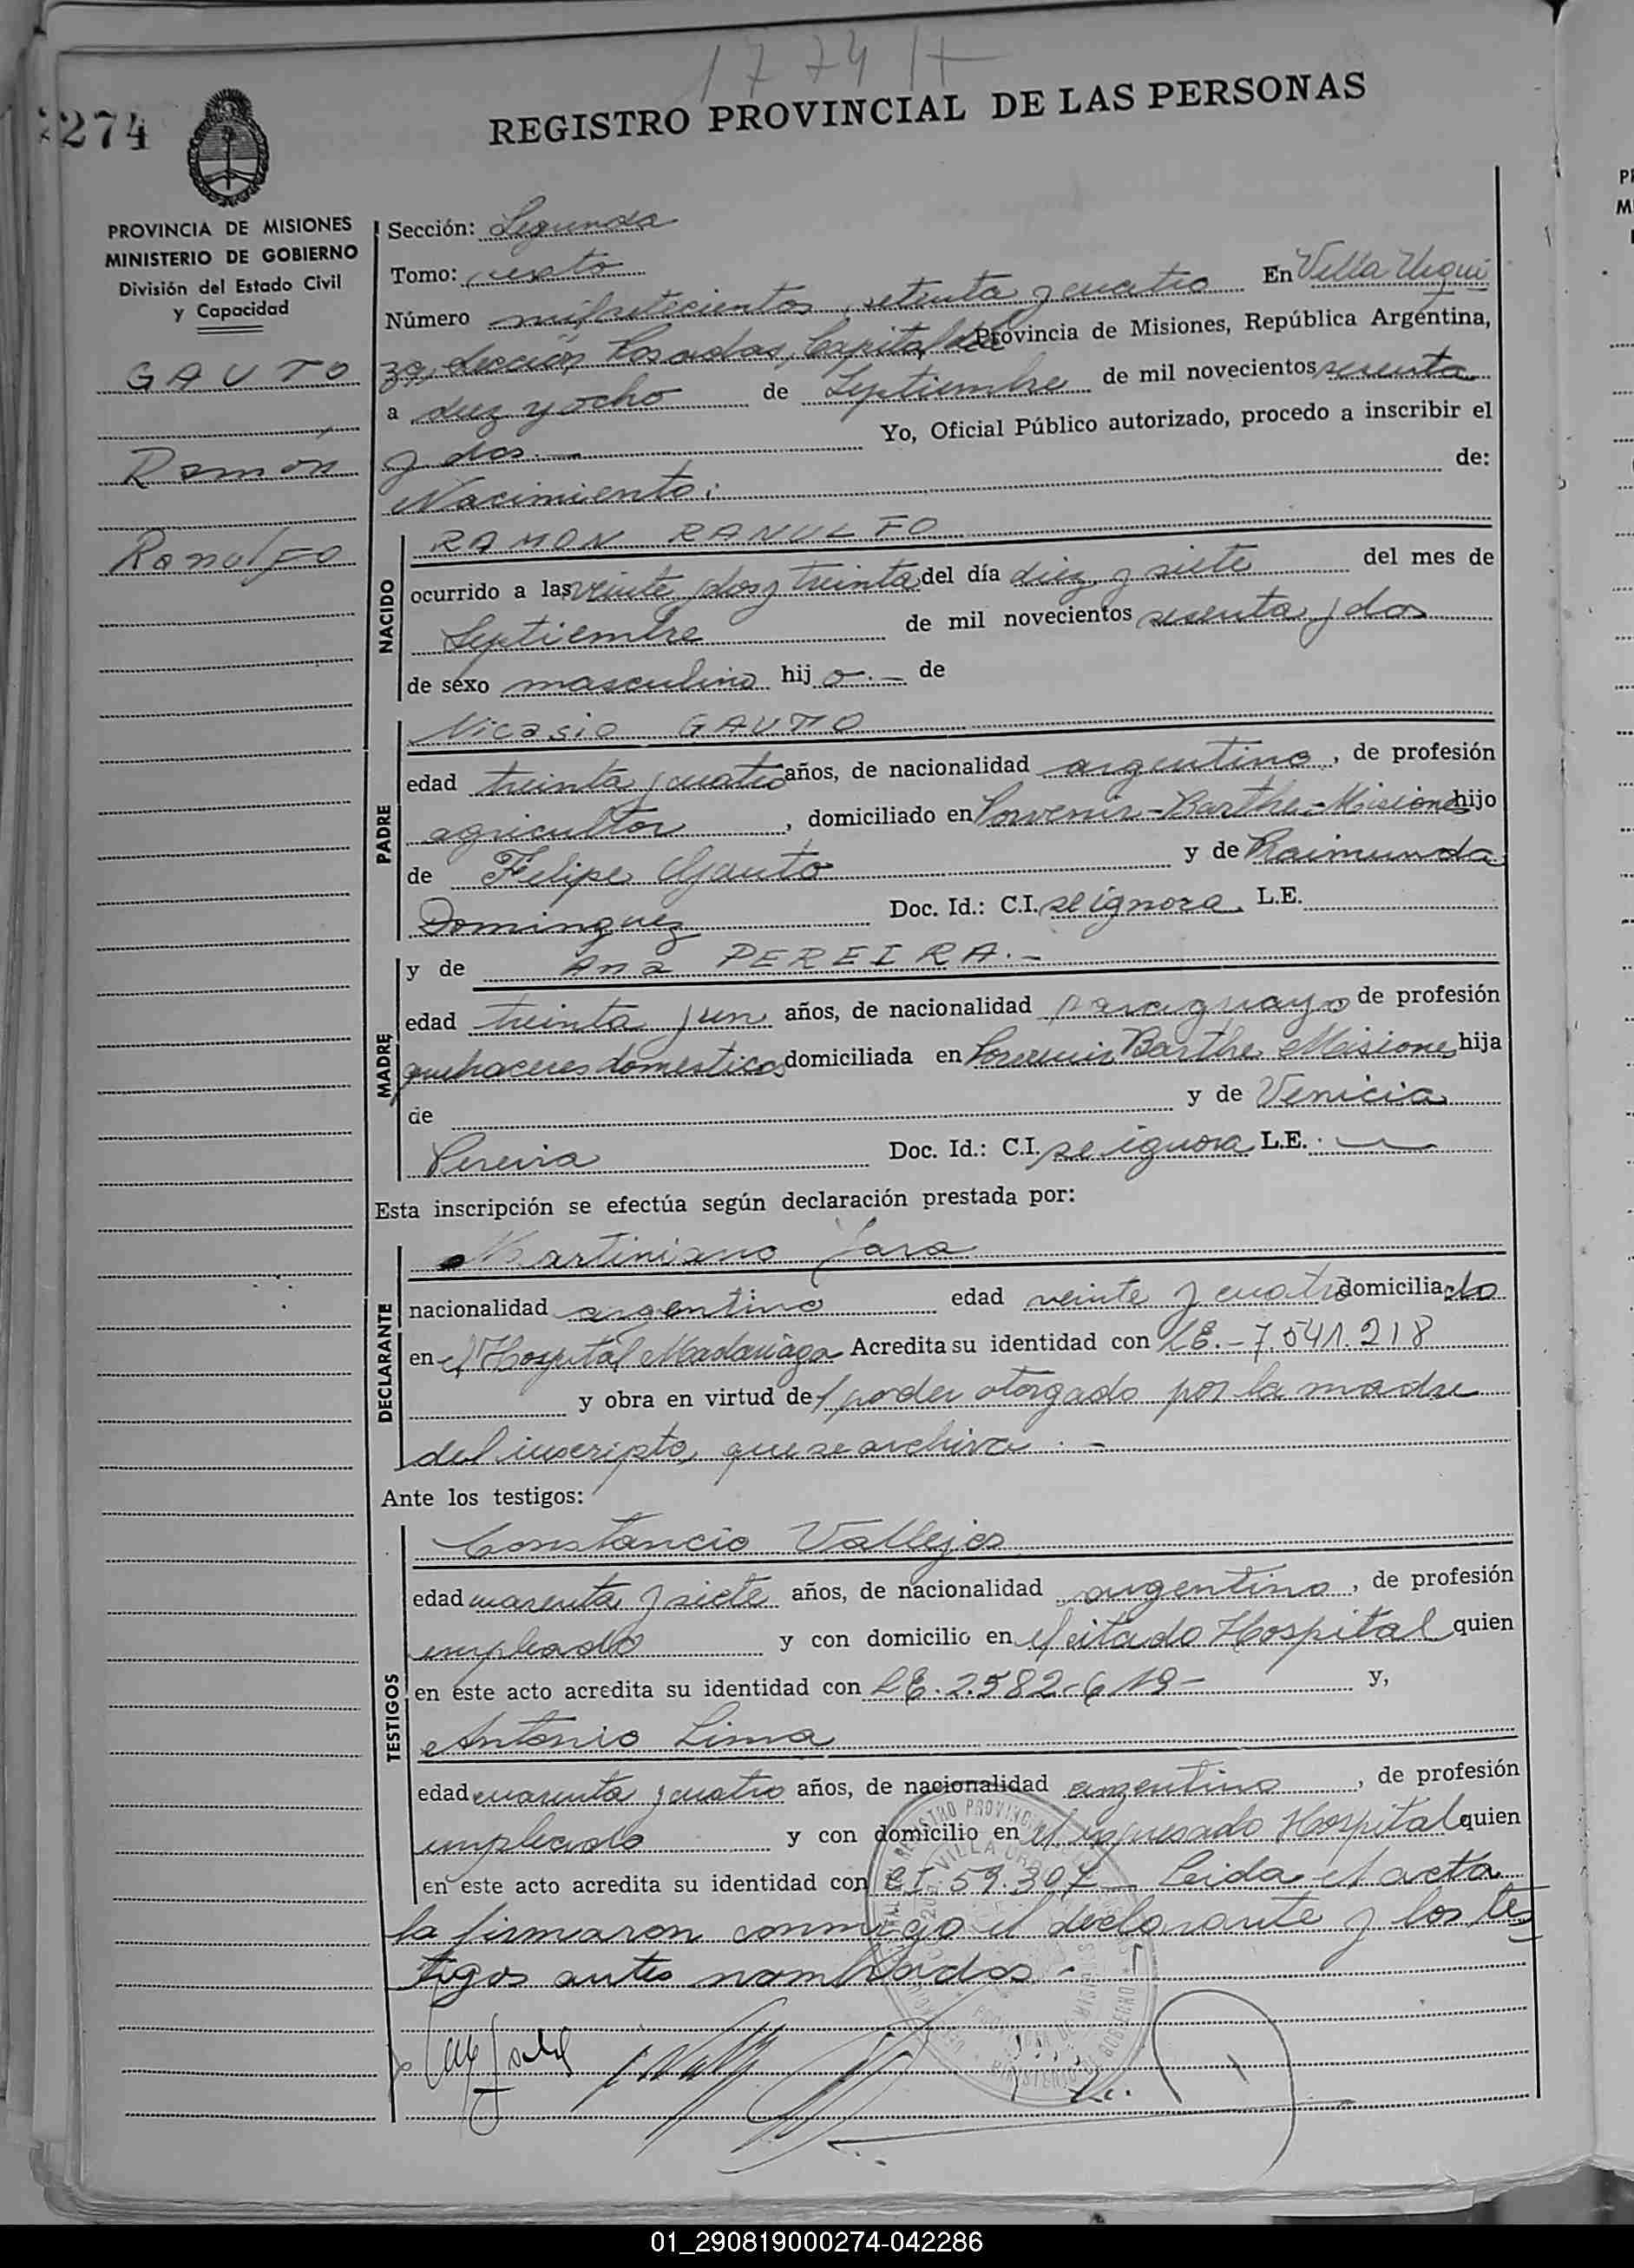 1774 H
REGISTRO PROVINCIAL DE LAS PERSONAS
274
PROVINCIA DE MISIONES
MINISTERIO DE GOBIERNO
División del Estado Civil
y Capacidad
GAUTO
Ramón
Ranulfo
Sección: Segunda
Tomo: sexto
Número mil setecientos setenta y cuatro En Villa Urqui
za, sección Posadas, Capital de la Provincia de Misiones, República Argentina,
a diez y ocho de Septiembre de mil novecientos sesenta
y dos.— Yo, Oficial Público autorizado, procedo a inscribir el
Nacimiento: de:
NACIDO
RAMON RANULFO
ocurrido a las veinte y dos y treinta del día diez y siete del mes de
Septiembre de mil novecientos sesenta y dos
de sexo masculino hij o.— de
PADRE
Nicasio GAUTO
edad treinta y cuatro años, de nacionalidad argentino, de profesión
agricultor, domiciliado en Porvenir-Barthe-Misiones hijo
de Felipe Gauto y de Raimunda
Dominguez Doc. Id.: C.I. se ignora. L.E.
MADRE
y de Ana PEREIRA.-
edad treinta y un años, de nacionalidad paraguaya de profesión
quehaceres domesticos domiciliada en Porvenir Barthe Misiones hija
de y de Venicia
Pereira Doc. Id.: C.I. se ignora L.E. .—
Esta inscripción se efectúa según declaración prestada por:
DECLARANTE
Martiniano Jara
nacionalidad argentino edad veinte y cuatro domiciliado
en el Hospital Madariaga Acredita su identidad con LE.-7.541.218
y obra en virtud del poder otorgado por la madre
del inscripto, que se archiva.-
Ante los testigos:
TESTIGOS
Constancio Vallejos
edad cuarenta y siete años, de nacionalidad argentino, de profesión
empleado y con domicilio en el citado Hospital quien
en este acto acredita su identidad con LE.2.582.619- y,
Antonio Lima
edad cuarenta y cuatro años, de nacionalidad argentino, de profesión
empleado y con domicilio en el expresado Hospital quien
en este acto acredita su identidad con CI.59.307 Leida el acta
la firmaron conmigo el declarante y los tes
tigos antes nombrados.-
01_290819000274-042286